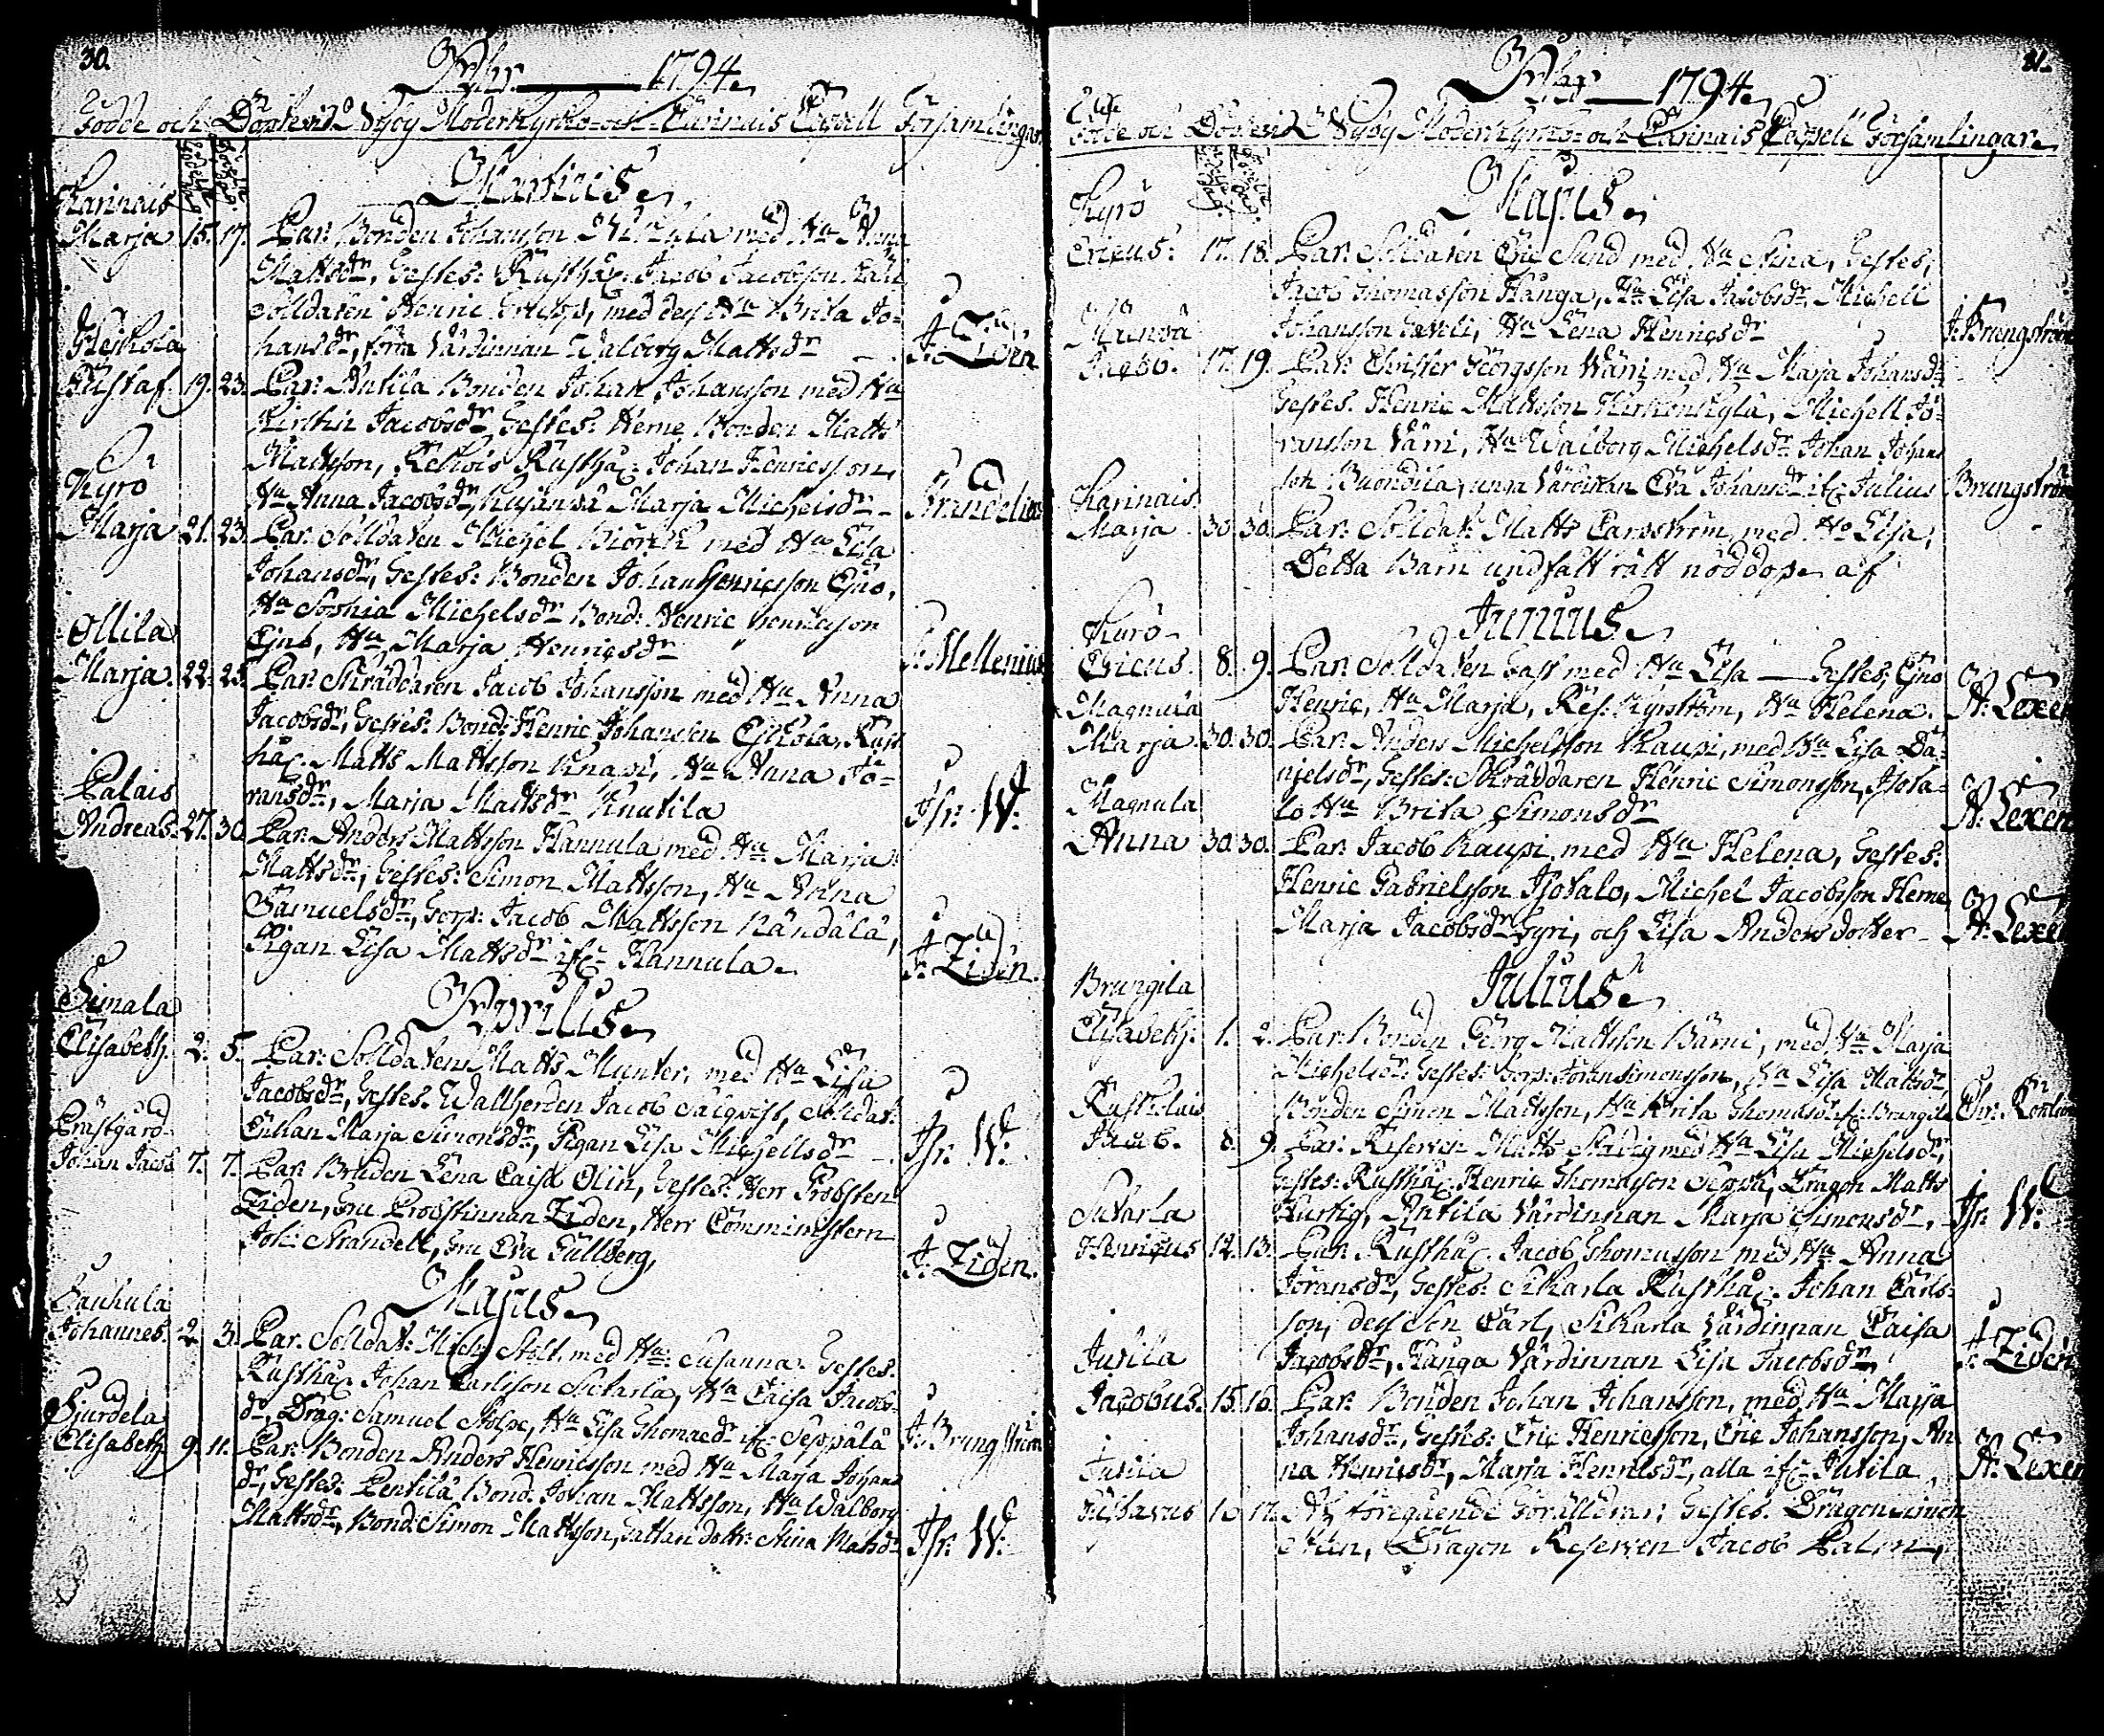 30.
Åhr 1794.
Födde och Döpte vid Wirby Moderkyrko- och Carinais Capell Församlingar
Martius.
Karinais
Marja 15. 17. Par: Bonden Johansson med Hu Anna
Mattsdr, Testes: Rusthål: Jacob Jacobsson
Solldaten Henric Ericsson, med dess Hu Brita Jo-
Heikola
hansdr, förra Värdinnan Walborg Mattsdr J: Zidén
Gustaf. 19. 23. Par: Antila Bonden Johan Johansson med Hu
Kirstin Jacobsdr, Testes: Heme Bonden Matts
Mattsson, Rekois Rusthål: Johan Henricsson,
Kyrö
Hu Anna Jacobsdr, Kujanså Marja Michelsdr Brandelius
Marja 21. 23. Par: Solldaten Michel Biörk med Hu Lisa
Johansdr, Testes: Bonden Johan Henricsson Ejno,
Hu Sophia Michelsdr Bond: Henric Henricsson
Ollila
Ejno, Hu Marja Henricsdr J: Mellenius
Marja. 22. 25. Par: Skräddaren Jacob Johansson med Hu Anna
Jacobsdr, Testes: Bond: Henric Johansson Eskola, Rust
hål: Matts Mattsson Knapi, Hu Anna Jö-
Palais
ransdr, Marja Mattsdr Knutila Jsr: W:
Andreas. 27. 30. Par: Anders Mattsson Hannula med Hu Marja
Mattsdr, Testes: Simon Mattsson, Hu Anna
Samuelsdr, Torp: Jacob Mattsson Kändälä,
Pigan Lisa Mattsdr if: Hannula. J: Zidén.
Aprillis.
Simala
Elisabeth. 2. 5. Par: Solldaten Matts Munter, med Hu Lisa
Jacobsdr, Testes: Wallherden Jacob Salqvist, Soldat:
Prästgård
Enkan Marja Simonsdr, Pigan Lisa Michellsdr Jsr: W:
Johan Jacob 7. 7. Par: Bruden Lena Caisa Olin, Testes: Herr Probsten
Ziden, Fru Probstinnan Ziden, Herr Comministern
Joh: Strandell, Fru Eva Gullberg, J: Zidén.
Majus.
Gauhula
Johannes. 2. 3. Par: Solldat: Mich: Stolt med Hu: Susanna. Testes:
Rusthål: Johan Carlsson Sikarla, Hu Caisa Jacobs-
Sjurdela
dr, Drag: Samuel Stolpe, Hu Lisa Thomaedr if: Seppälä J: Brungström
Elisabeth 9. 11. Par: Bonden Anders Henricsson med Hu Marja Johans
dr, Testes: Pentilä Bond: Johan Mattsson, Hu Walborg
Mattsdr, Bond: Simon Mattsson, Gattan dottr: Stina Matsdr Jsr: W:
31.
Åhr 1794.
Födde och Döpte vid Wirby Moderkyrko- och Carinais Capell Församlingar
Majus.
Kyrö
Ericus. 17. 18. Par: Solldaten Eric Sund med Hu Stina, Testes;
Jacob Thomasson Kånga, Hu Lisa Jacobsdr, Michell
Johansson Gaveli, Hu Lena Henricsdr J: Brungström
Jacob. 17. 19. Par: Christer Görgsson Wärri med Hu Marja Johansdr
Testes. Henric Mattsson Kirkonkylä, Michell Jö-
ransson Värri, Hu Walborg Michelsdr Johan Johans
son Buondila, unga Värdinan Eva Johansdr if: Julius Brungström
Karinais
Marja 30. 30. Par: Soldat: Matts Carsström med Hu Lisa,
Detta Barn undfått rätt nöddop af
Junius.
Kyrö
Ericus. 8. 9. Par: Solldaten Gast med Hu Lisa Testes; Ejno
Henric, Hu Marja, Res: Kyrström, Hu Helena. A: Lexen
Magnula
Marja 30. 30. Par: Anders Michelsson Kaupi, med Hu Lisa Da-
nielsdr, Testes: Skräddaren Henric Simonsson, Isota-
lo Hu Brita Simonsdr A: Lexen
Magnula
Anna 30. 30. Par: Jacob Kaupi med Hu Helena, Testes:
Henric Gabrielsson Isotalo, Michel Jacobsson Heme
Marja Jacobsdr Gyri, och Lisa Andersdotter A: Lexen
Julius.
Brungila
Elisabeth. 1. 2. Par: Bonden Görg Mattsson Bärni, med Hu Marja
Michelsdr Testes: Torp: Jöran Simonsson, Hu Lisa Mattsdr,
Bonden Simon Mattsson, Hu Brita Thomasdr if: Brungila
Jacob. 8. 9. Par: Reserven Matts Stadig med Hu Lisa Michelsdr,
Testes: Rusthål: Henric Thomasson Seppälä, Dragon Matts
Hurtig, Antila Värdinnan Marja Simonsdr, Jsr: W:
Sikarla
Henricus 12. 13. Par: Rusthål: Jacob Thomasson med Hu Anna
Jöransdr, Testes: Sikarla Rusthål: Johan Carls-
son, dess Son Carl, Sikarla Värdinnan Caisa
Jacobsdr, Kånga Värdinnan Lisa Jacobsdr, J: Zidén
Jutila
Jacobus. 15. 16. Par: Bonden Johan Johansson, med Hu Marja
Johansdr, Testes: Eric Henricsson, Eric Johansson, An
na Henricsdr, Marja Henricsdr, alla if: Jutila A: Lexen
Jutila
Gustavus 16. 17. Af föregående Föräldrar; Testes. Dragon Simon
Dragon Reserven Jacob Palm,